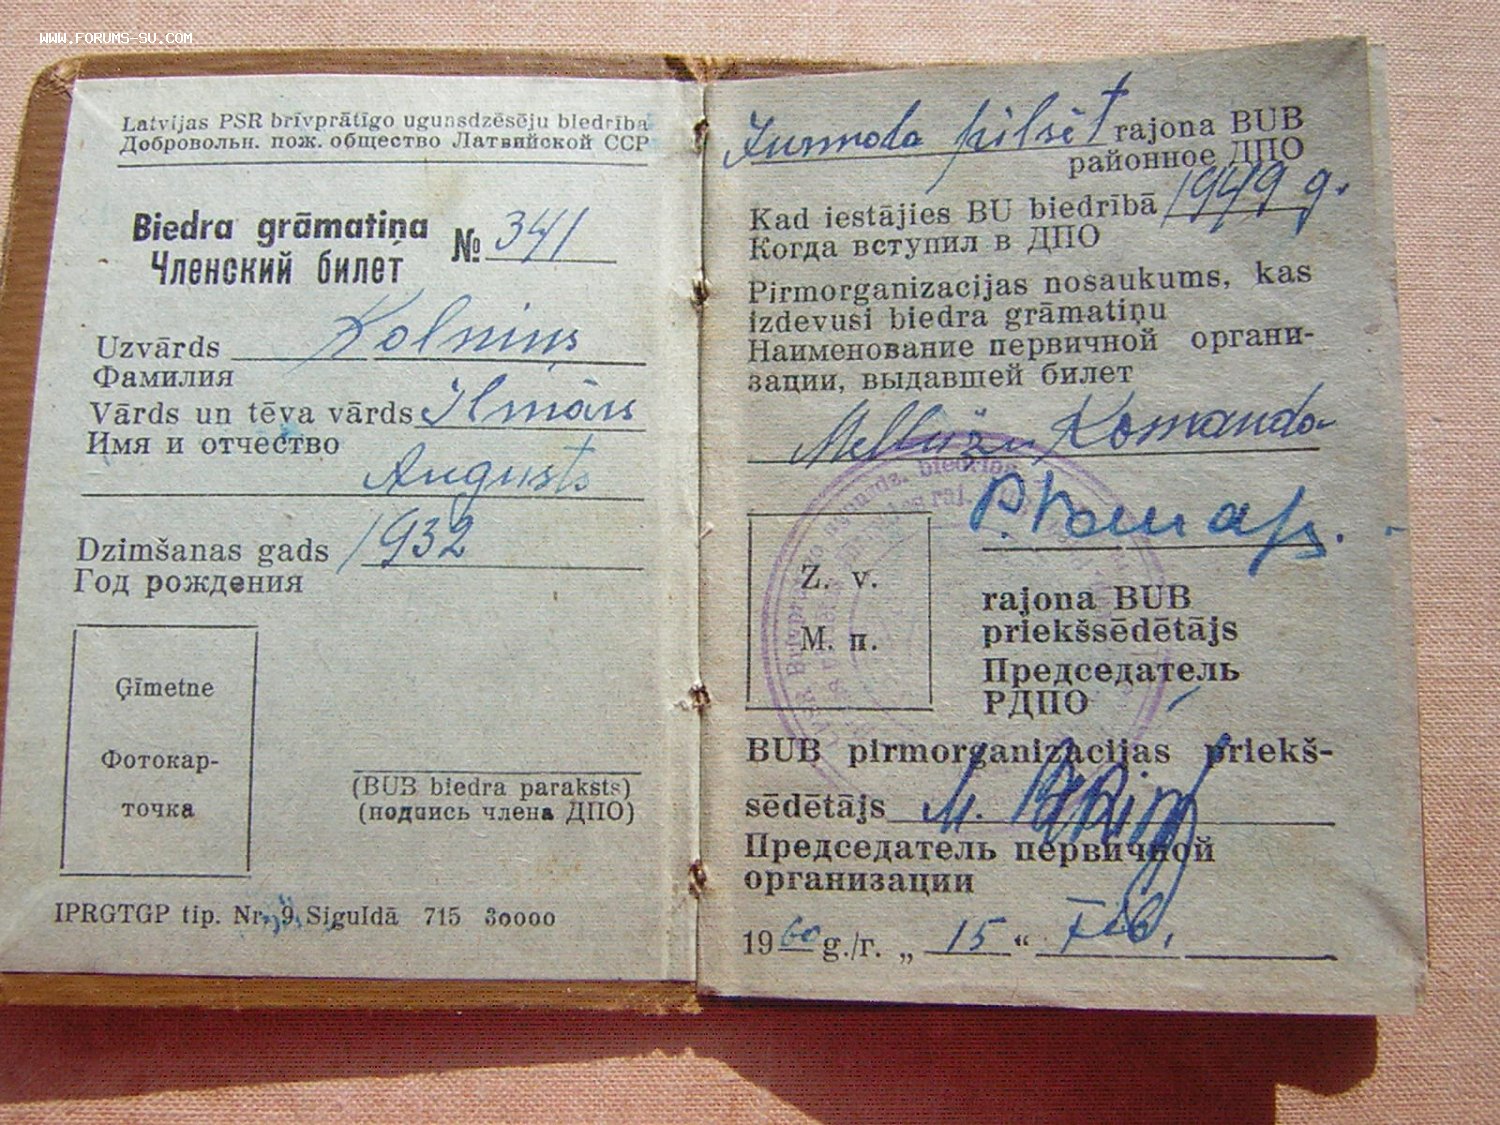 WWW.FORUMS-SU.COM
Latvijas PSR brīvprātīgo ugunsdzēsēju biedrība
Добровольн. пож. общество Латвийской ССР
Biedra grāmatiņa № 341
Членский билет
Uzvārds Kolniņs
Фамилия
Vārds un tēva vārds Ilmārs
Имя и отчество
Augusts
Dzimšanas gads 1932
Год рождения
Ģīmetne
Фотокар-
точка
(BUB biedra paraksts)
(подпись члена ДПО)
IPRGTGP tip. Nr. 9 Siguldā 715 30000
pilsēt rajona BUB
районное ДПО
Kad iestājies BU biedrībā 1949 g.
Когда вступил в ДПО
Pirmorganizacijas nosaukums, kas
izdevusi biedra grāmatiņu
Наименование первичной органи-
зации, выдавшей билет
Mellužu Komanda
Z. v.
M. п.
rajona BUB
priekšsēdētājs
Председатель
РДПО
BUB pirmorganizacijas priekš-
sēdētājs M.
Председатель первичной
организации
1960 g./г. „ 15 “ Feb.